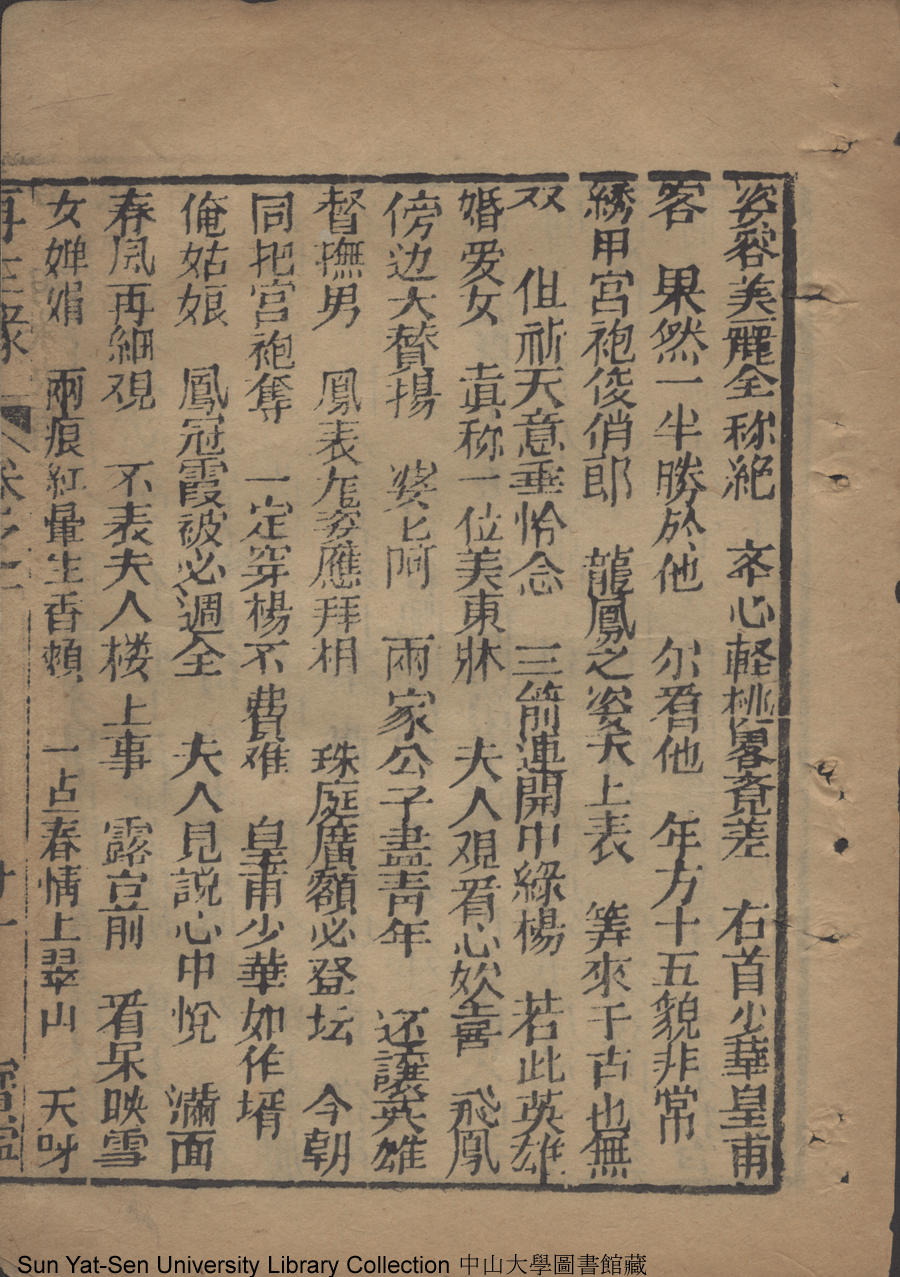 姿容美麗全称絶　齐心軽桃畧竟差　右首少華皇甫
客　果然一半勝於他　尔看他　年方十五貌非常
綉甲宮袍俊俏郎　龍鳳之姿天上表　筭來千古也無
双　但祈天意垂怜念　三箭連開中綠楊　若此英雄
婚爱女　真称一位美東牀　夫人观看心欢喜　飛鳳
傍边大贊揚　婆匕阿　兩家公子盡青年　还讓英雄
督撫男　鳳表應拜相　珠庭廣額必登坛　今朝
同把宮袍奪　一定穿楊不費难　皇甫少華如作壻
俺姑娘　鳳冠霞被必週全　夫人見説心中悅　滿面
春风再細观　不表夫人楼上事　露台前　看呆映雪
女婵娟　兩痕紅暈生香頰　一点春情上翠山　天呀
再生縁　卷之二　廿一
Sun Yat-Sen University Library Collection 中山大學圖書館藏